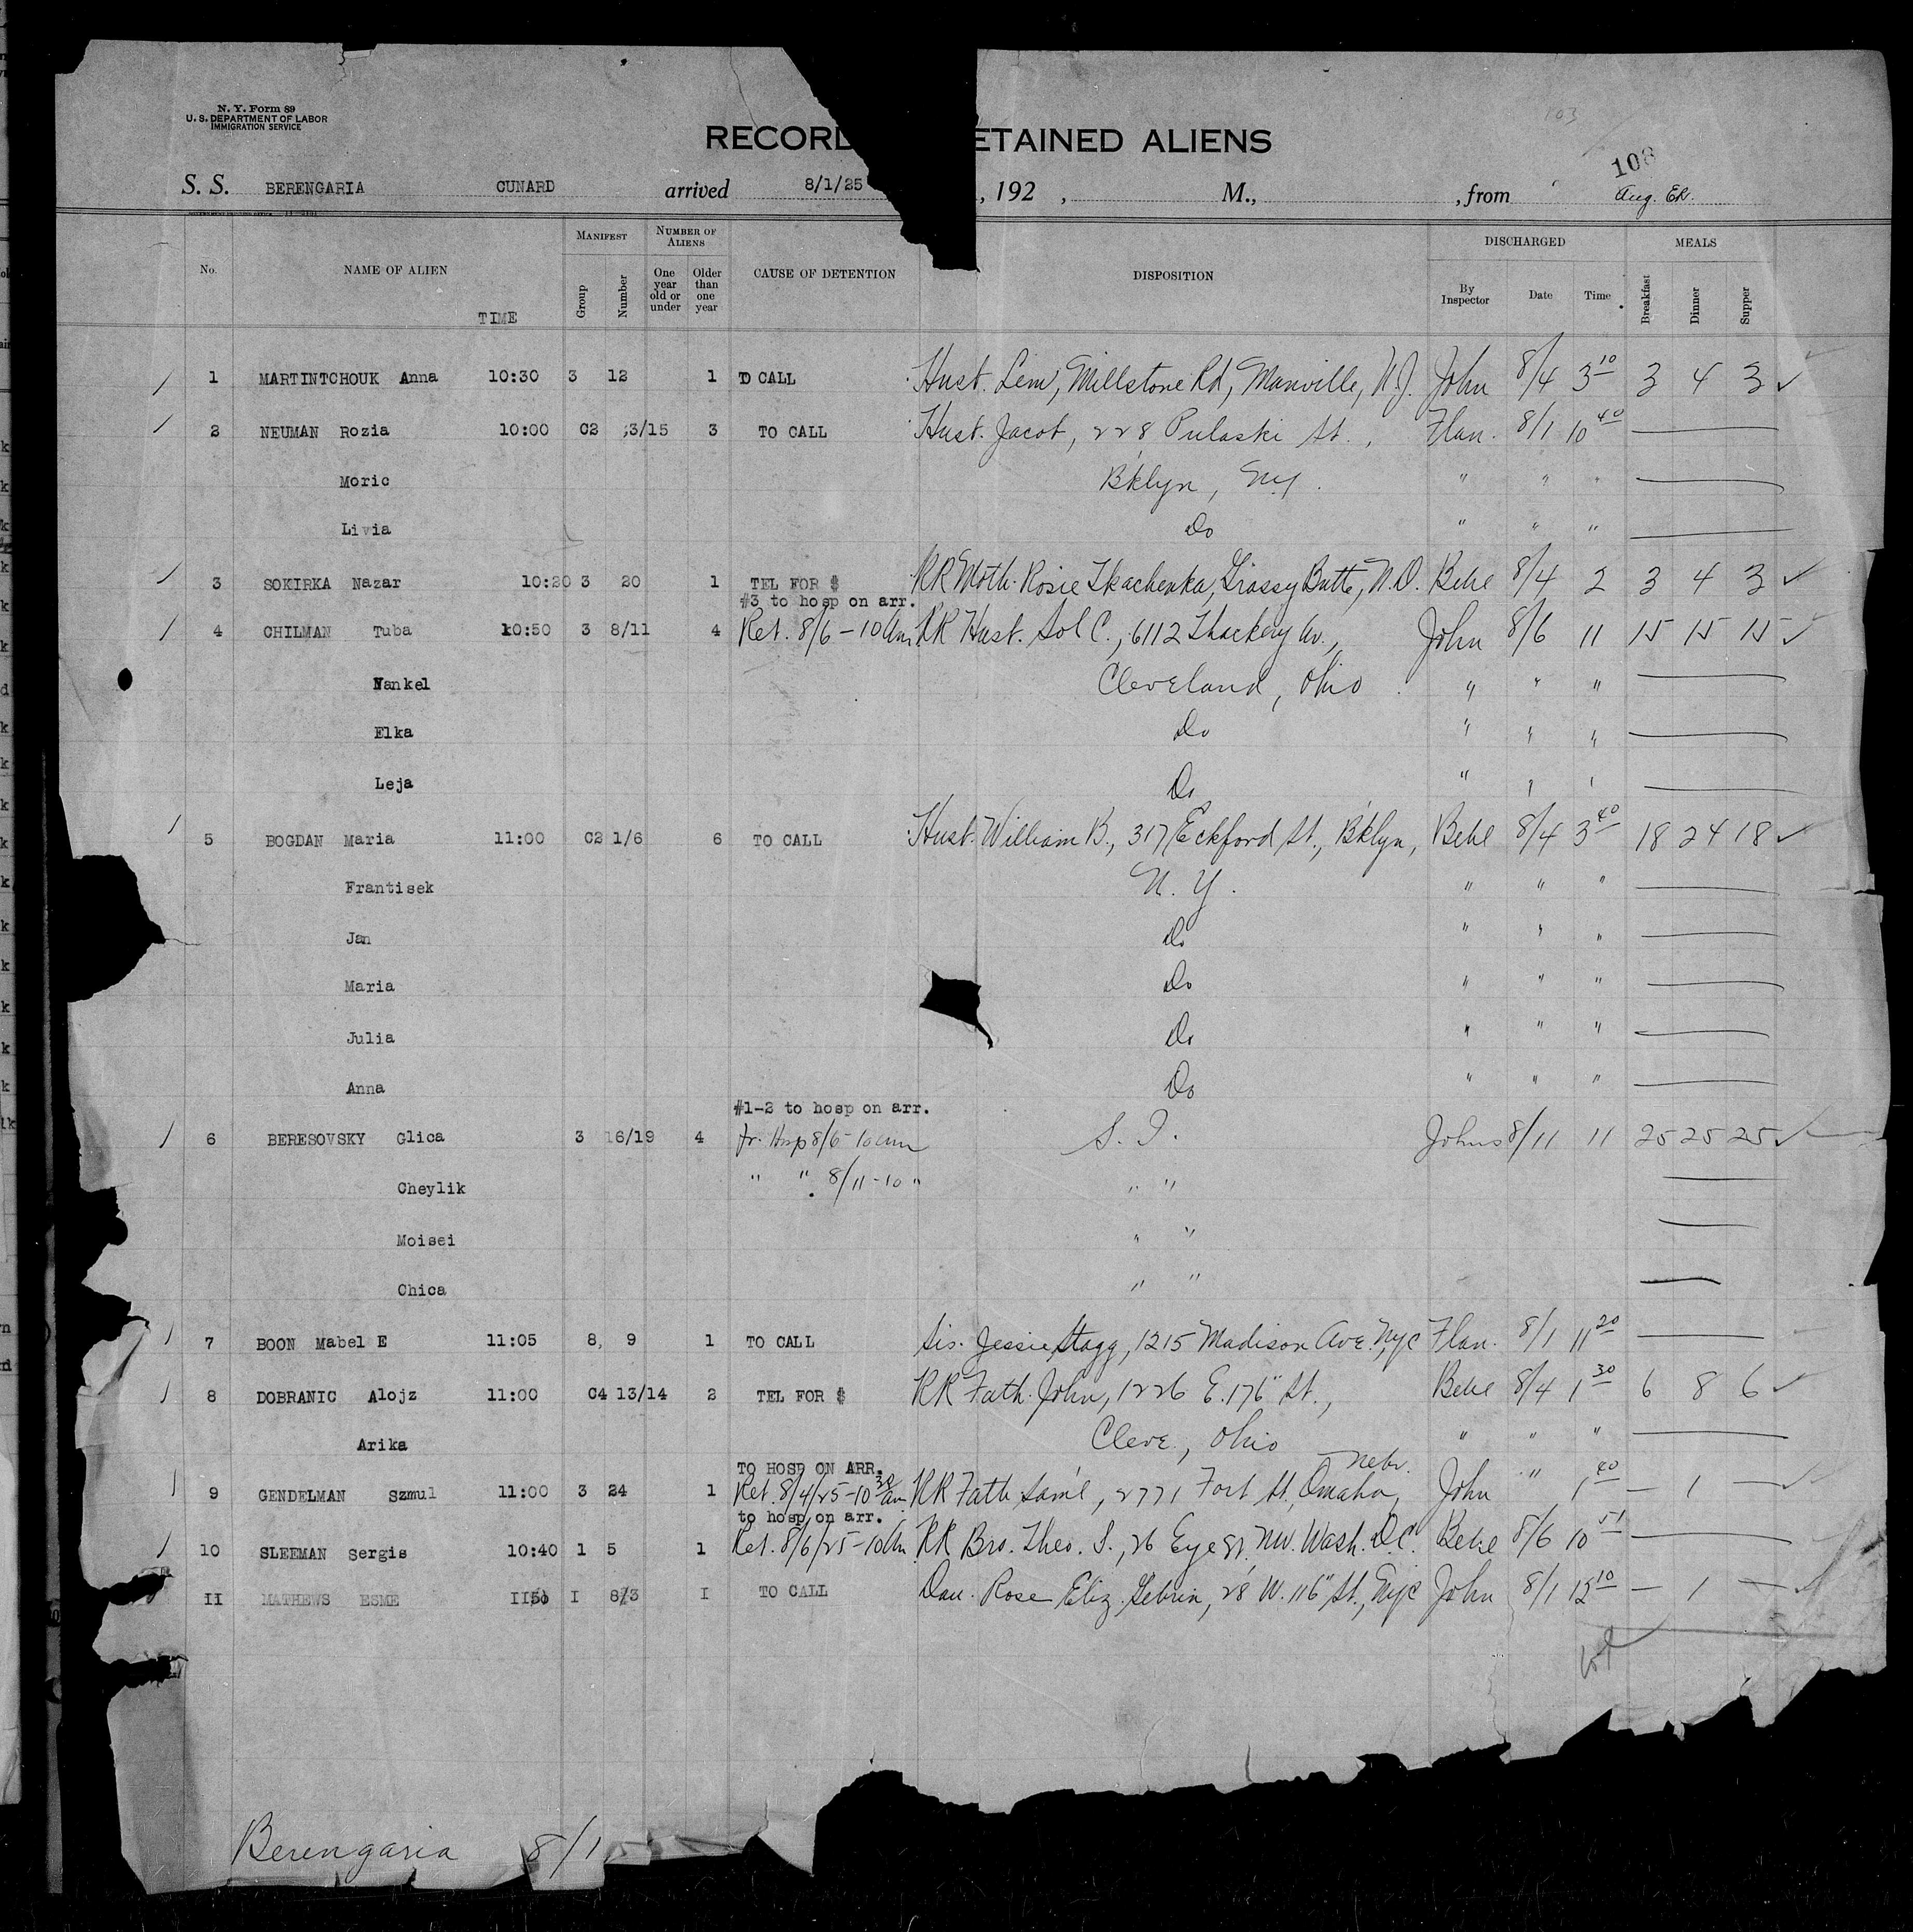 N. Y. Form 89
U. S. DEPARTMENT OF LABOR
IMMIGRATION SERVICE
103
RECORD ETAINED ALIENS
108
S. S. BERENGARIA CUNARD arrived 8/1/25 , 192 , M., , from Aug. Er.
No. NAME OF ALIEN TIME MANIFEST Group Number NUMBER OF ALIENS One year old or under Older than one year CAUSE OF DETENTION DISPOSITION DISCHARGED By Inspector Date Time MEALS Breakfast Dinner Supper
1 MARTINTCHOUK Anna 10:30 3 12 1 TO CALL Hust. Lem, Millstone Rd, Manville, N.J. John 8/4 3 10 3 4 3 ✓
2 NEUMAN Rozia 10:00 C2 13/15 3 TO CALL Hust. Jacob, 228 Pulaski St., Flan. 8/1 10 40
Moric B'klyn, N.Y. " " "
Livia Do " " "
3 SOKIRKA Nazar 10:20 3 20 1 TEL FOR $ RR Moth. Rosie Tkachenka, Grassy Butte, N.D. Behl 8/4 2 3 4 3 ✓
#3 to hosp on arr.
4 CHILMAN Tuba 10:50 3 8/11 4 Ret. 8/6-10 Am RR Hust. Sol C., 6112 Thackery Av., John 8/6 11 15 15 15 ✓
Nankel Cleveland, Ohio " " "
Elka Do " " "
Leja Do " " "
5 BOGDAN Maria 11:00 C2 1/6 6 TO CALL Hust. William B., 317 Eckford St., B'klyn, Behl 8/4 3 40 18 24 18 ✓
Frantisek N.Y. " " "
Jan Do " " "
Maria Do " " "
Julia Do " " "
Anna Do " " "
#1-2 to hosp on arr.
6 BERESOVSKY Glica 3 16/19 4 fr. Hosp 8/6-10am S. I. Johns 8/11 11 25 25 25 ✓
Cheylik " " 8/11-10 " " "
Moisei " "
Chica " "
7 BOON Mabel E 11:05 8, 9 1 TO CALL Sis. Jessie Stagg, 1215 Madison Ave. Nyc Flan. 8/1 11 20
8 DOBRANIC Alojz 11:00 C4 13/14 2 TEL FOR $ RR Fath. John, 1226 E. 176" St., Behl 8/4 1 30 6 8 6 ✓
Arika Cleve., Ohio " " "
TO HOSP ON ARR.
9 GENDELMAN Szmul 11:00 3 24 1 Ret. 8/4/25-10 30 am RR Fath Sam'l, 2771 Fort St, Omaha, Nebr. John " 1 40 — 1 — ✓
to hosp on arr.
10 SLEEMAN Sergis 10:40 1 5 1 Ret. 8/6/25-10 Am RR Bro. Theo. S., 26 Eye St. NW. Wash. D.C. Behl 8/6 10 51
II MATHEWS ESME II50 I 8/3 I TO CALL Dau. Rose Eliz. Gebrin, 28 W. 116" St., Nyc John 8/1 12 10 — 1 — ✓
Berengaria 8/1